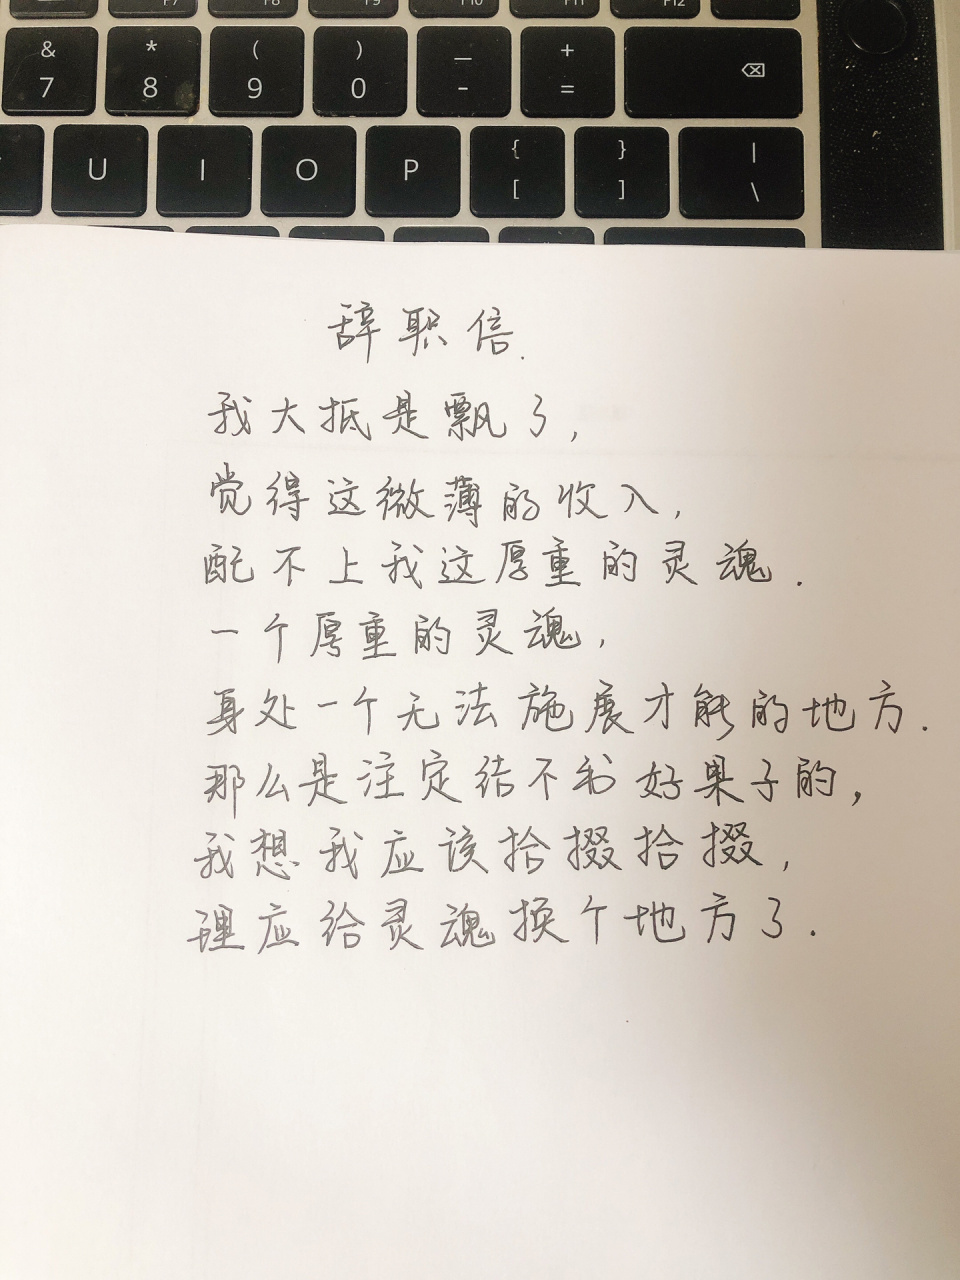 F7 F8 F9 F10 F11 F12
& * ( ) _ +
7 8 9 0 - =
{ } |
U I O P [ ] \
辞职信.
我大抵是飘了,
觉得这微薄的收入,
配不上我这厚重的灵魂.
一个厚重的灵魂,
身处一个无法施展才能的地方.
那么是注定结不出好果子的,
我想我应该拾掇拾掇,
理应给灵魂换个地方了.